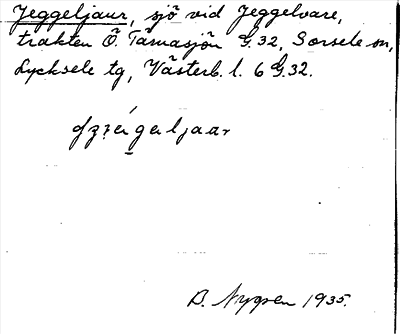 Jeggeljaur, sjö vid Jeggelvare,
trakten Ö. Tärnasjön G.32, Sorsele sn,
Lycksele tg, Västerb. l. 6 G.32.
B. 1935.